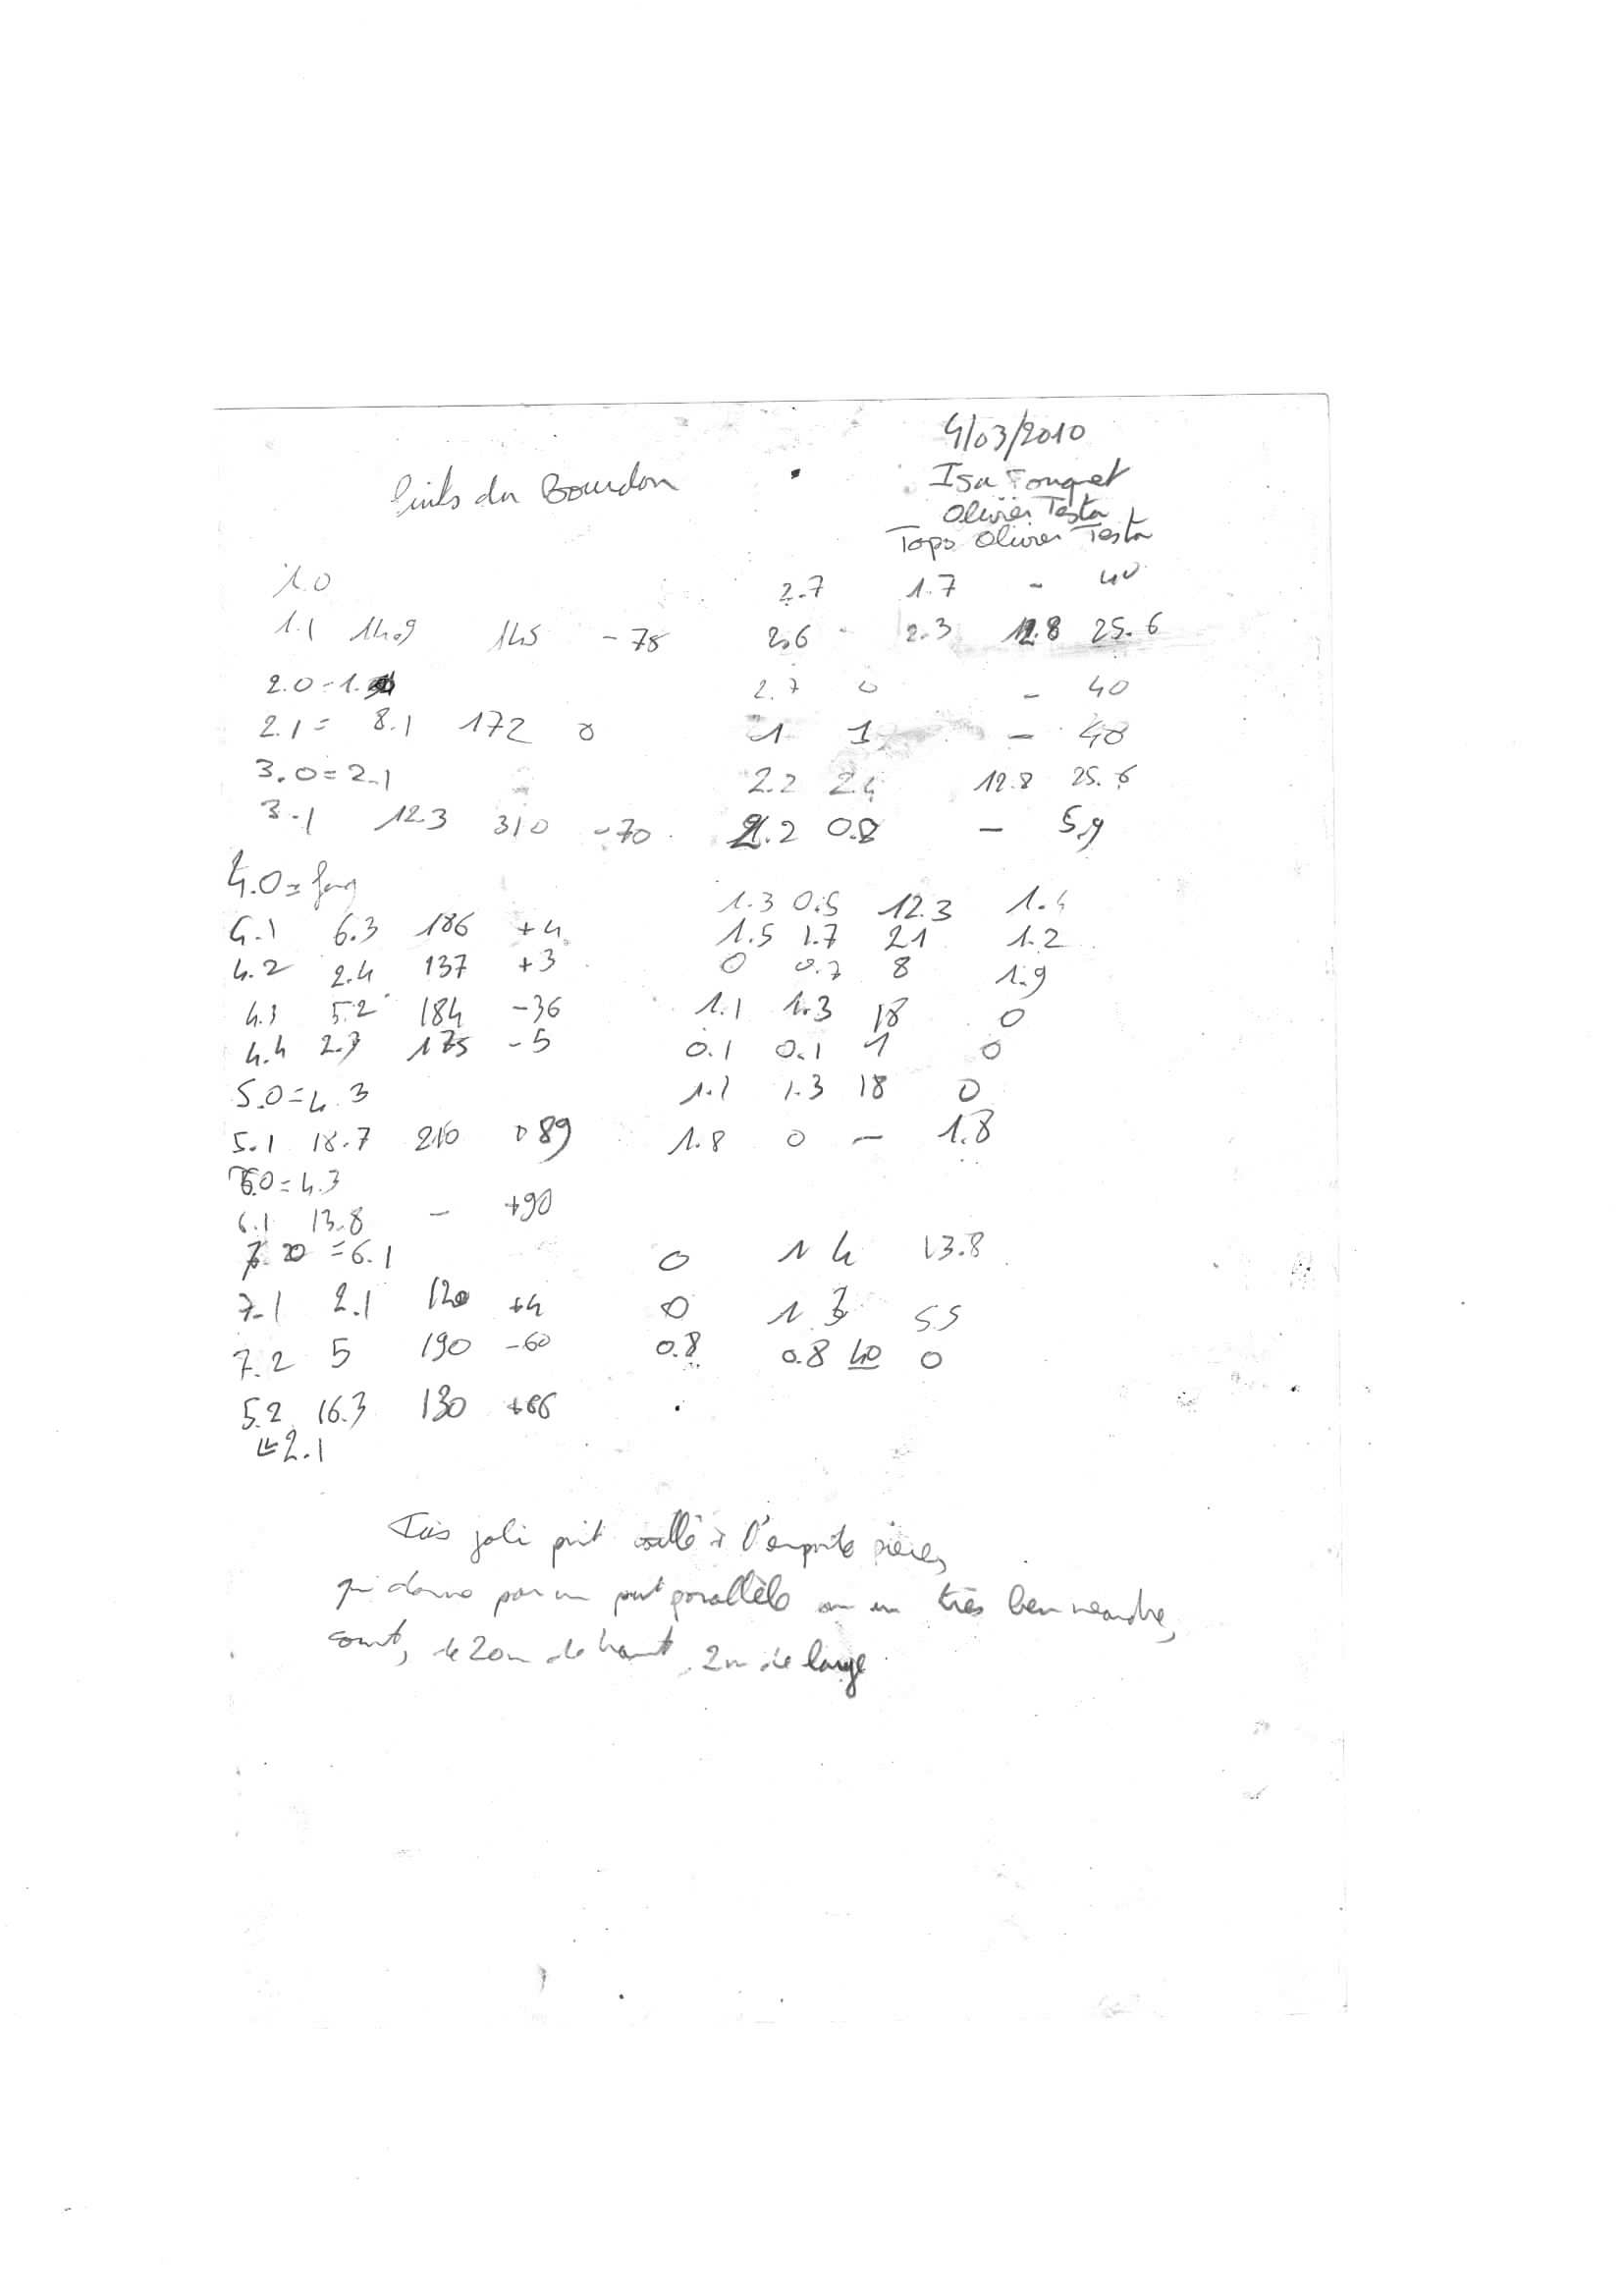 4/03/2010
Puits du Bourdon
Isa Fouquet
Olivier Testa
Topo Olivier Testa
1.0 2.7 1.7 - 40
1.1 14.9 145 -78 2.6 2.3 12.8 25.6
2.0=1.
2.7 0 - 40
2.1= 8.1 172 0 1 1 - 48
3.0=2.1 2.2 2.4 12.8 25.6
3.1 12.3 310 -70 2.2 0.8 - 5.9
4.0= 1.3 0.5 12.3 1.4
4.1 6.3 186 +4 1.5 1.7 21 1.2
4.2 2.4 137 +3 0 0.7 8 1.9
4.3 5.2 184 -36 1.1 1.3 18 0
4.4 2.7 175 -5 0.1 0.1 1 0
5.0=4.3 1.1 1.3 18 0
5.1 18.7 210 89 1.8 0 - 1.8
6.0=4.3
6.1 13.8 - +90
7.0 =6.1 0 1 4 13.8
7.1 2.1 120 +4 0 1 3 5.5
7.2 5 190 -60 0.8 0.8 40 0
5.2 16.3 130 +86
=2.1
Très joli puit taillé à l'emporte pièces,
qui donne par un puit parallèle sur un très beau méandre,
court, de 20m de haut, 2m de large